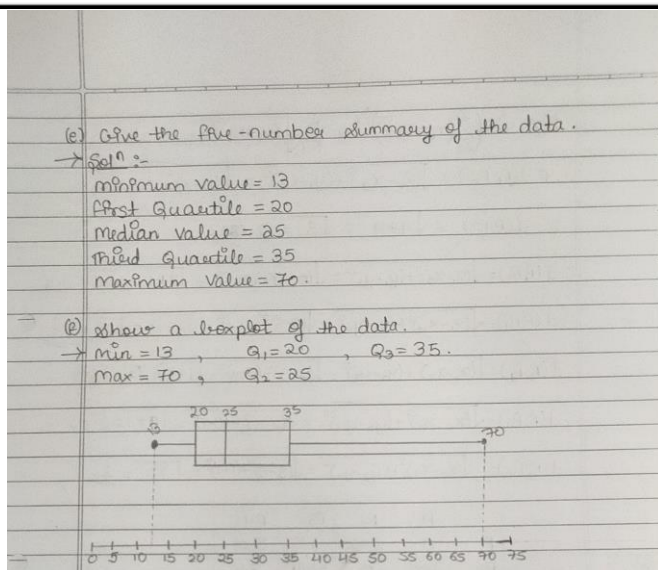 (e) Give the five-number summary of the data.
→ Solⁿ :-
minimum value = 13
first Quartile = 20
Median value = 25
Third Quartile = 35
Maximum value = 70.
(e) show a boxplot of the data.
→ Min = 13 , Q₁ = 20 , Q₃ = 35.
Max = 70 , Q₂ = 25
20 25 35
13 70
0 5 10 15 20 25 30 35 40 45 50 55 60 65 70 75